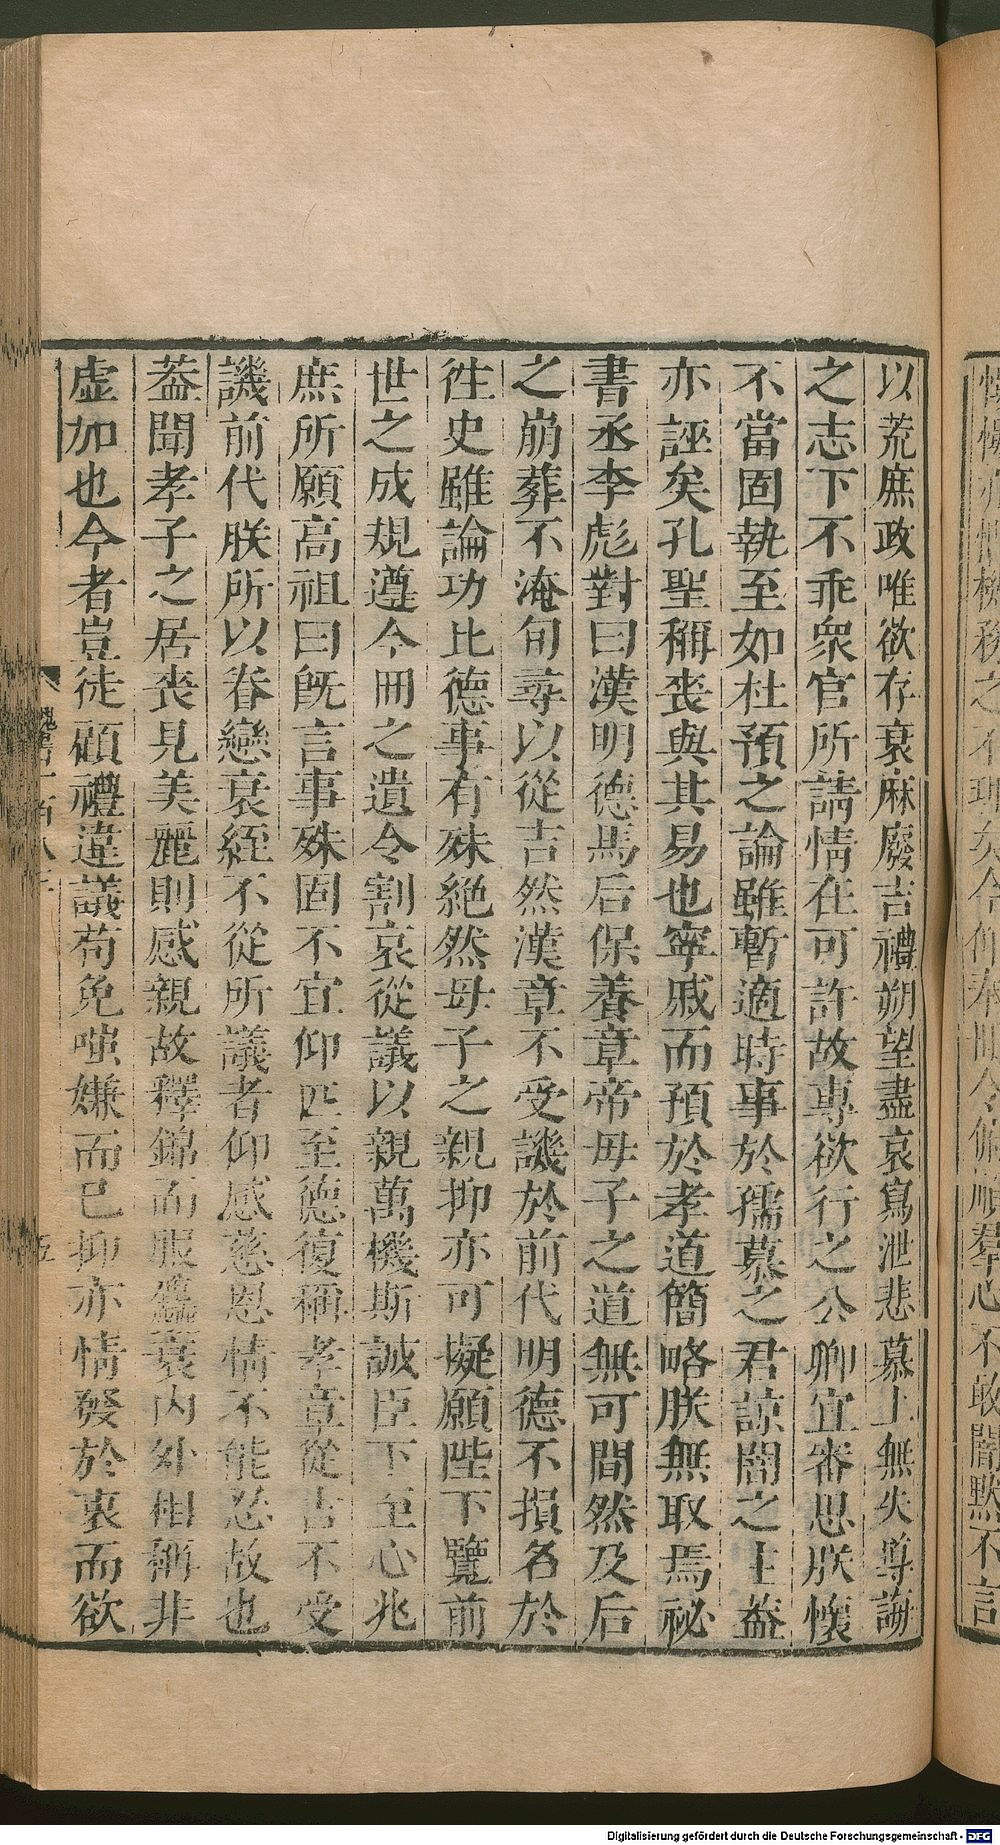 慺慺亦惟機務之不理矣今仰奉明令俯順羣心不敢闇默不言
以荒庶政唯欲存衰麻廢吉禮朔望盡哀寫泄悲慕上無失導誨
之志下不乖衆官所請情在可許故專欲行之公卿宜審思朕懷
不當固執至如杜預之論雖暫適時事於孺慕之君諒闇之主葢
亦誣矣孔聖稱喪與其易也寧戚而預於孝道簡略朕無取焉祕
書丞李彪對曰漢明德馬后保養章帝母子之道無可間然及后
之崩葬不淹旬尋以從吉然漢章不受譏於前代明德不損名於
徃史雖論功比德事有殊絶然母子之親抑亦可擬願陛下覽前
世之成規遵今冊之遺令割哀從議以親萬機斯誠臣下至心兆
庶所願高祖曰旣言事殊固不宜仰匹至德復稱孝章從吉不受
譏前代朕所以眷戀衰絰不從所議者仰感慈恩情不能忍故也
葢聞孝子之居喪見美麗則感親故釋錦而服麤衰內外相稱非
虛加也今者豈徒顧禮違議苟免嗤嫌而已抑亦情發於衷而欲
魏書一百八三
五
Digitalisierung gefördert durch die Deutsche Forschungsgemeinschaft - DFG